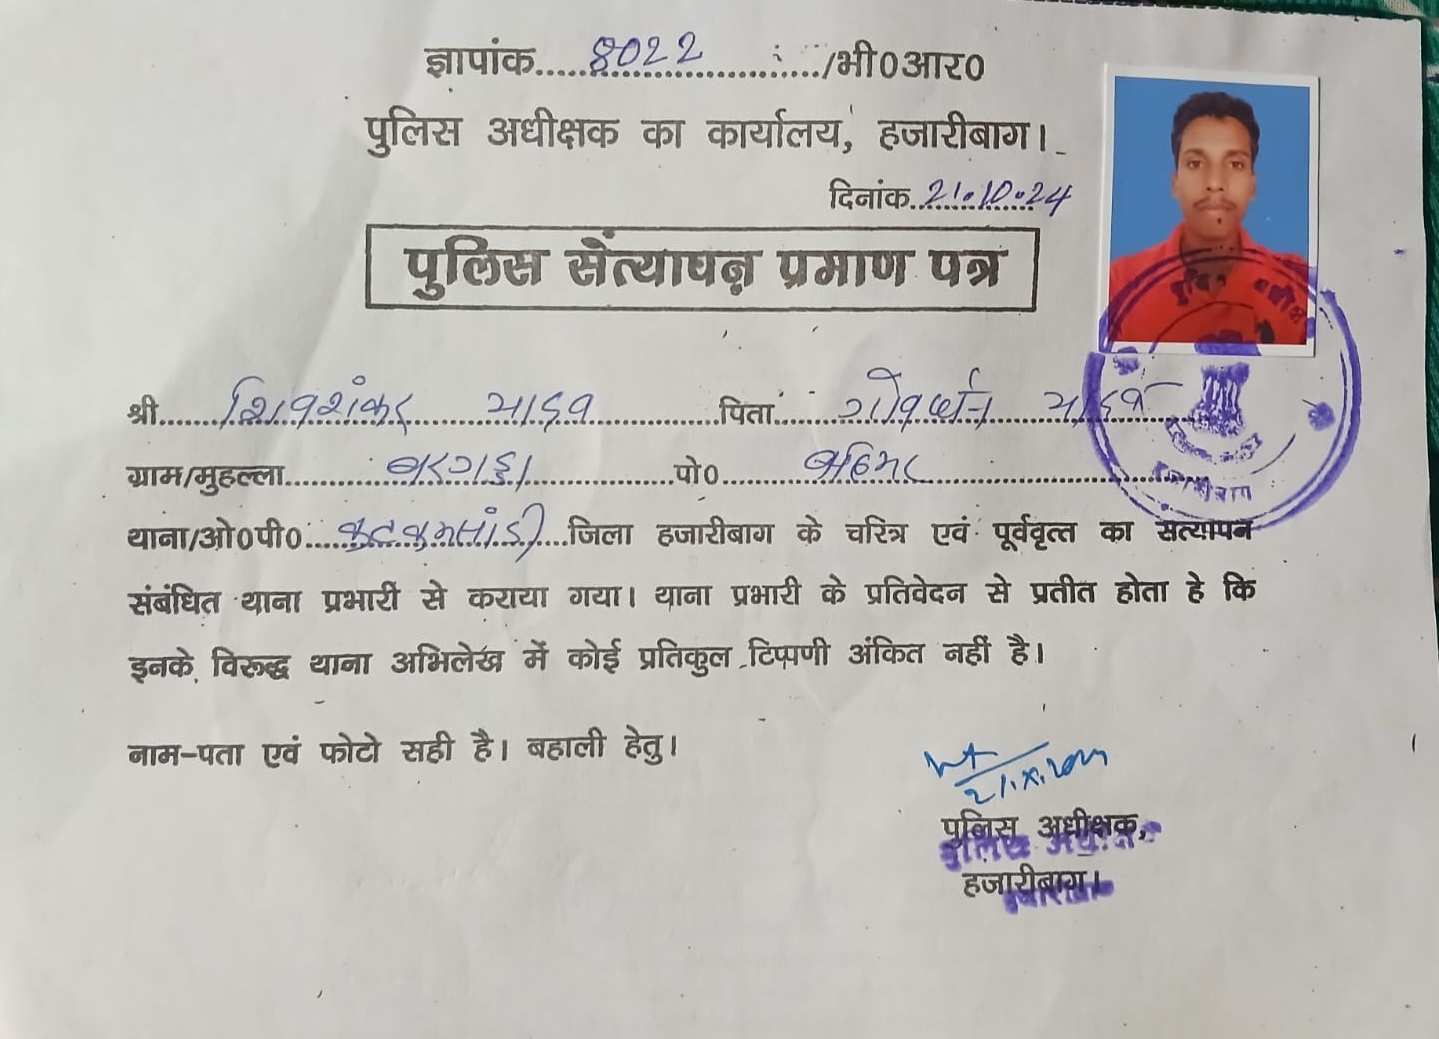 ज्ञापांक 8022 /भी0आर0
पुलिस अधीक्षक का कार्यालय, हजारीबाग।
दिनांक 21.10.24
पुलिस सत्यापन प्रमाण पत्र
श्री शिवशंकर यादव पिता गोवर्धन यादव
ग्राम/मुहल्ला बरगड्डा पो0
थाना/ओ0पी0 कटकमसांडी जिला हजारीबाग के चरित्र एवं पूर्ववृत्त का सत्यापन
संबंधित थाना प्रभारी से कराया गया। थाना प्रभारी के प्रतिवेदन से प्रतीत होता है कि
इनके विरूद्ध थाना अभिलेख में कोई प्रतिकुल टिप्पणी अंकित नहीं है।
नाम-पता एवं फोटो सही है। बहाली हेतु।
पुलिस अधीक्षक,
हजारीबाग।